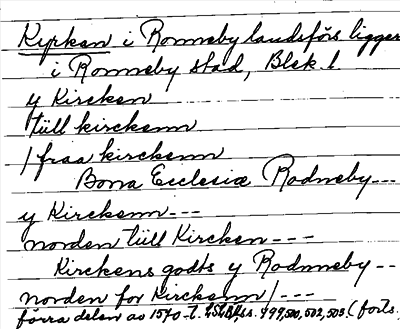 Kyrkan i Ronneby landsförs ligger
i Ronneby stad, Blek. l.
y Kircken
tiill kirckenn
/ fraa kirckenn
Bona Ecclesiæ Rodneby---
y Kirckenn---
norden tiill Kircken---
Kirckens godts y Rodneby--
norden for Kirckenn/---
förra delen av 1570-t. 499,500,502,503 (forts.